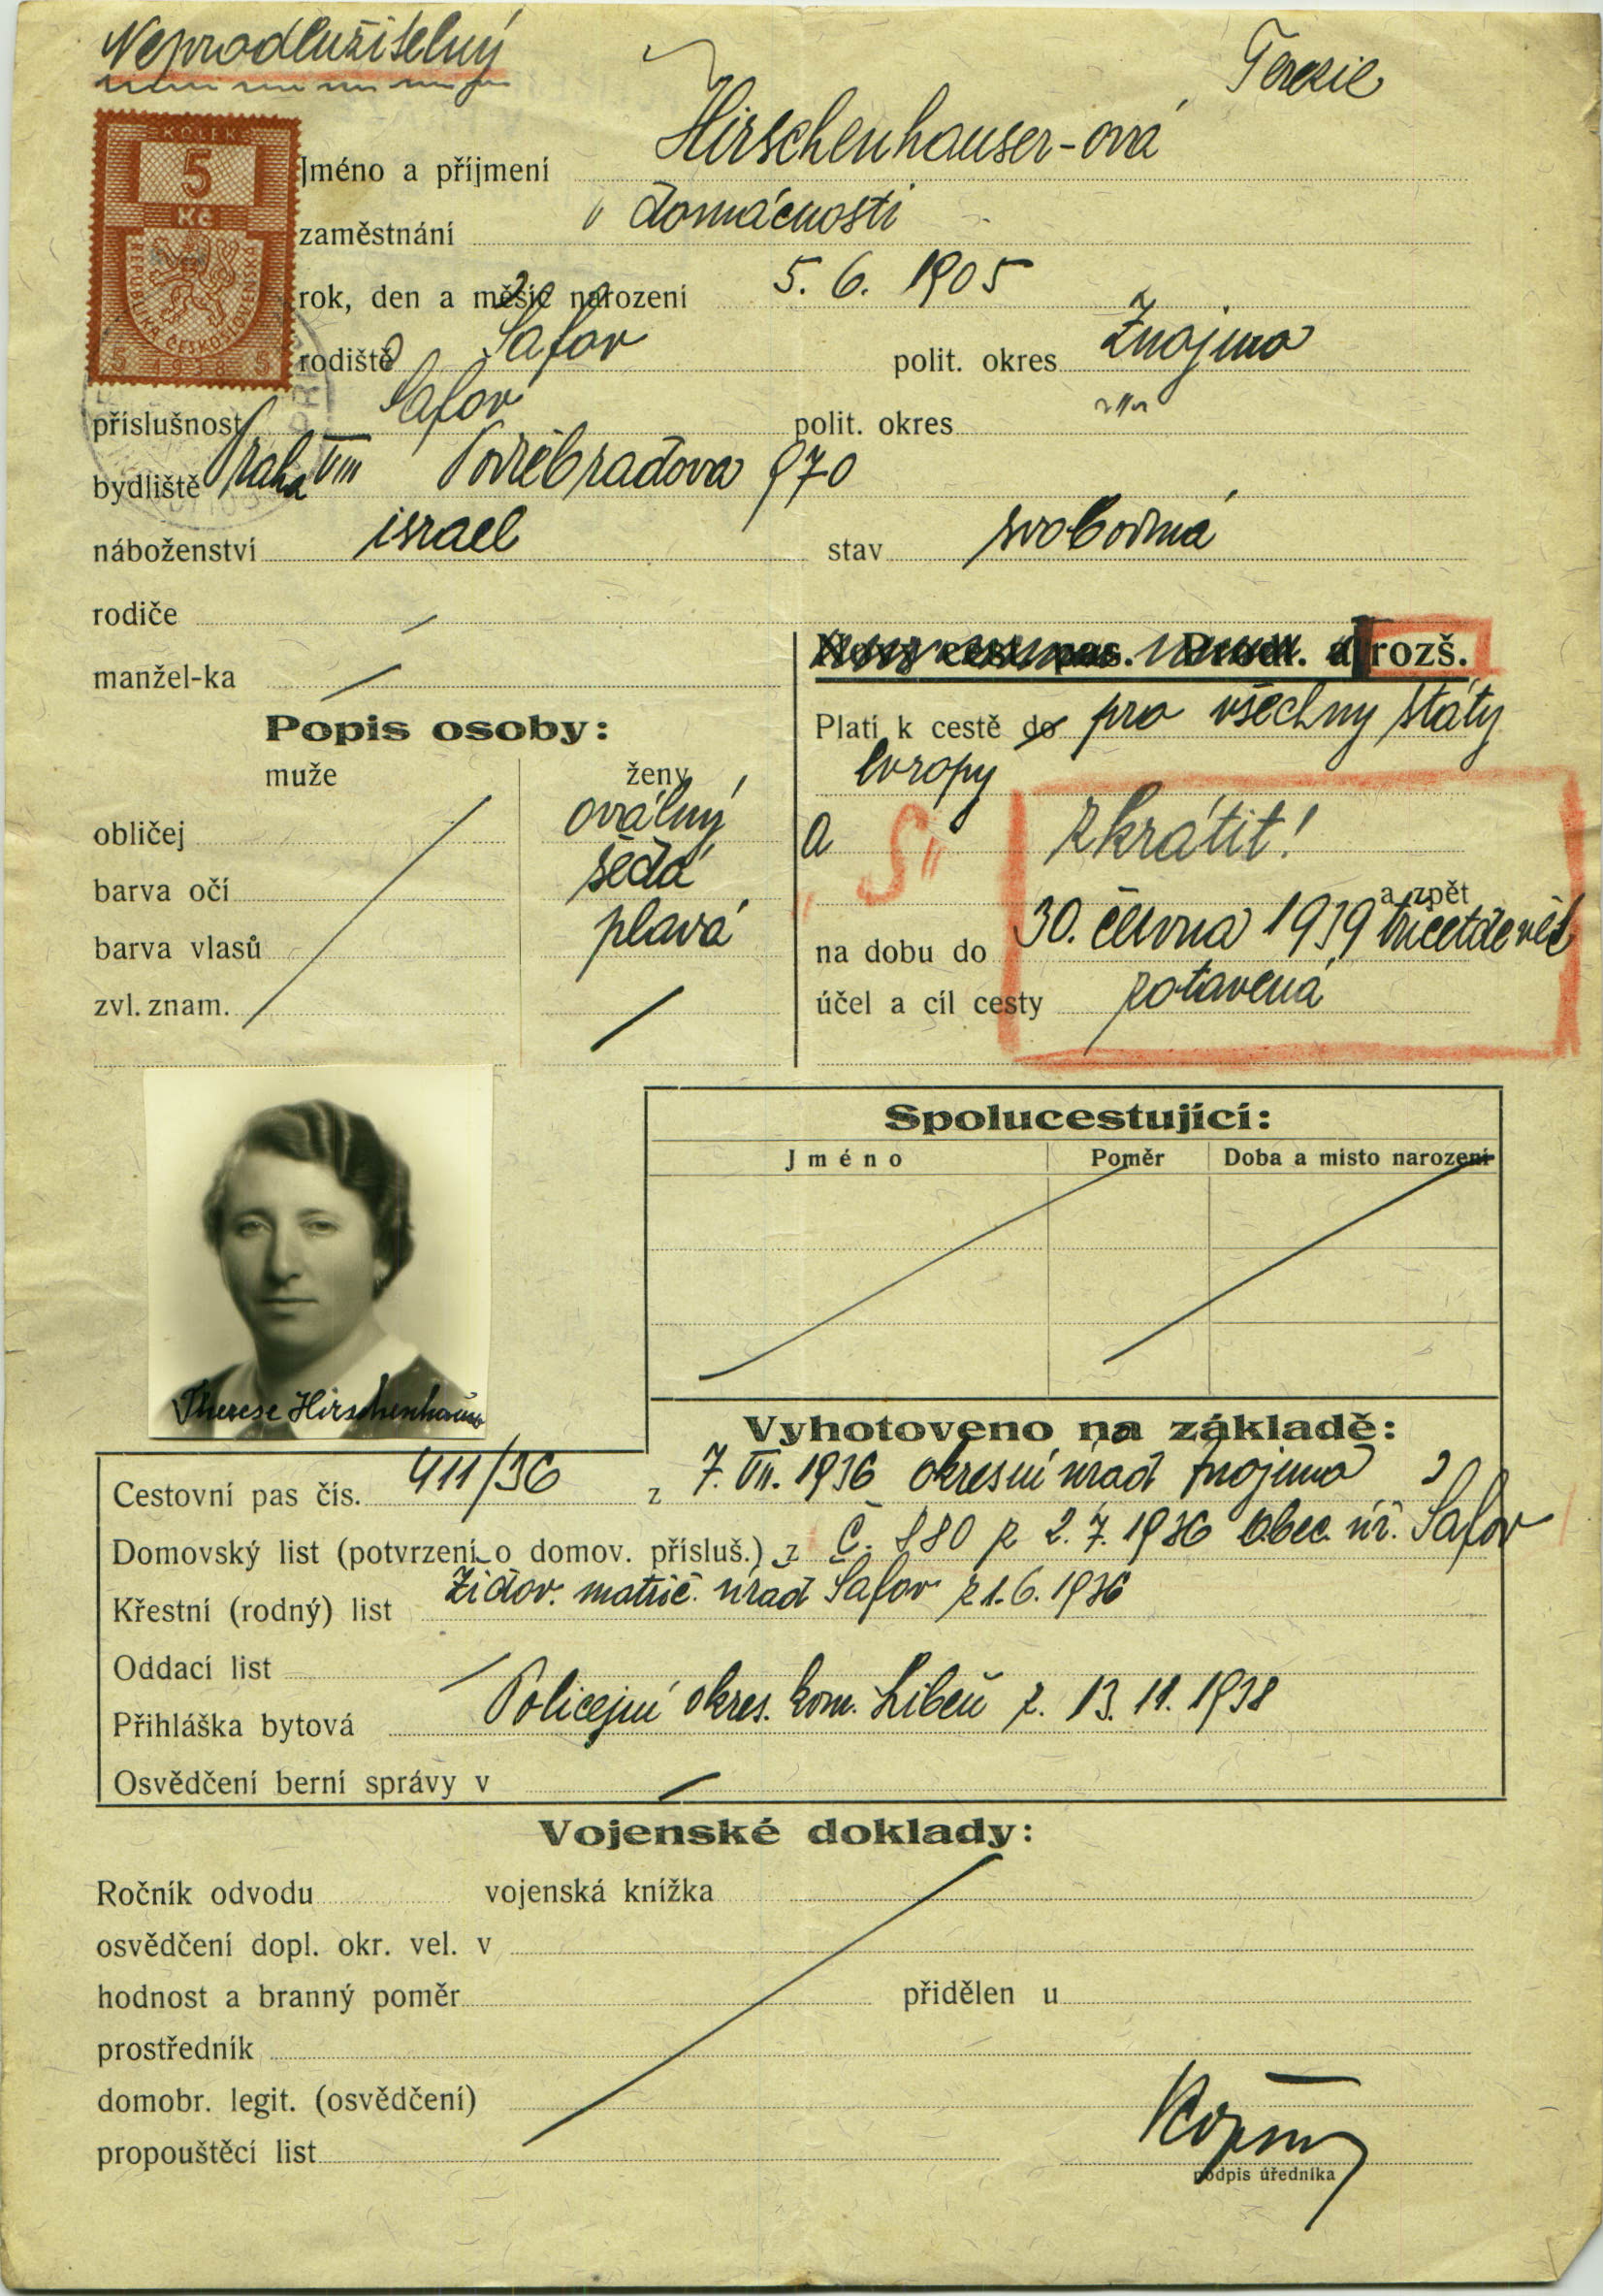 Neprodlužitelný
Terezie
KOLEK
5
Kč
REPUBLIKA ČESKOSLOVENSKÁ
5 1938 5
Jméno a příjmení Hirschenhauser-ová
zaměstnání v domácnosti
rok, den a měsíc narození 5. 6. 1905
rodiště Šafov polit. okres Znojmo
příslušnost Šafov polit. okres "
bydliště Praha VIII Poděbradova 970
náboženství israel stav svobodná
rodiče
manžel-ka
Nový cest. pas. Prodl. a rozš.
Popis osoby:
Platí k cestě do pro všechny státy
Evropy
muže ženy
obličej oválný
a „S" zkrátit!
barva očí šedá
a zpět
barva vlasů plavá
na dobu do 30. června 1939 třicetdevět
zvl. znam.
účel a cíl cesty zotavená
Spolucestující:
Jméno Poměr Doba a místo narození
Therese Hirschenhauser
Vyhotoveno na základě:
Cestovní pas čís. 411/36 z 7. VII. 1936 okresní úřad Znojmo
Domovský list (potvrzení o domov. přísluš.) z č. 880 z 2. 7. 1936 obec. úř. Šafov
Křestní (rodný) list Židov. matrič. úřad Šafov z 1. 6. 1936
Oddací list
Přihláška bytová Policejní okres. kom. Libeň z. 13. 11. 1938
Osvědčení berní správy v
Vojenské doklady:
Ročník odvodu vojenská knížka
osvědčení dopl. okr. vel. v
hodnost a branný poměr přidělen u
prostředník
domobr. legit. (osvědčení)
propouštěcí list
podpis úředníka